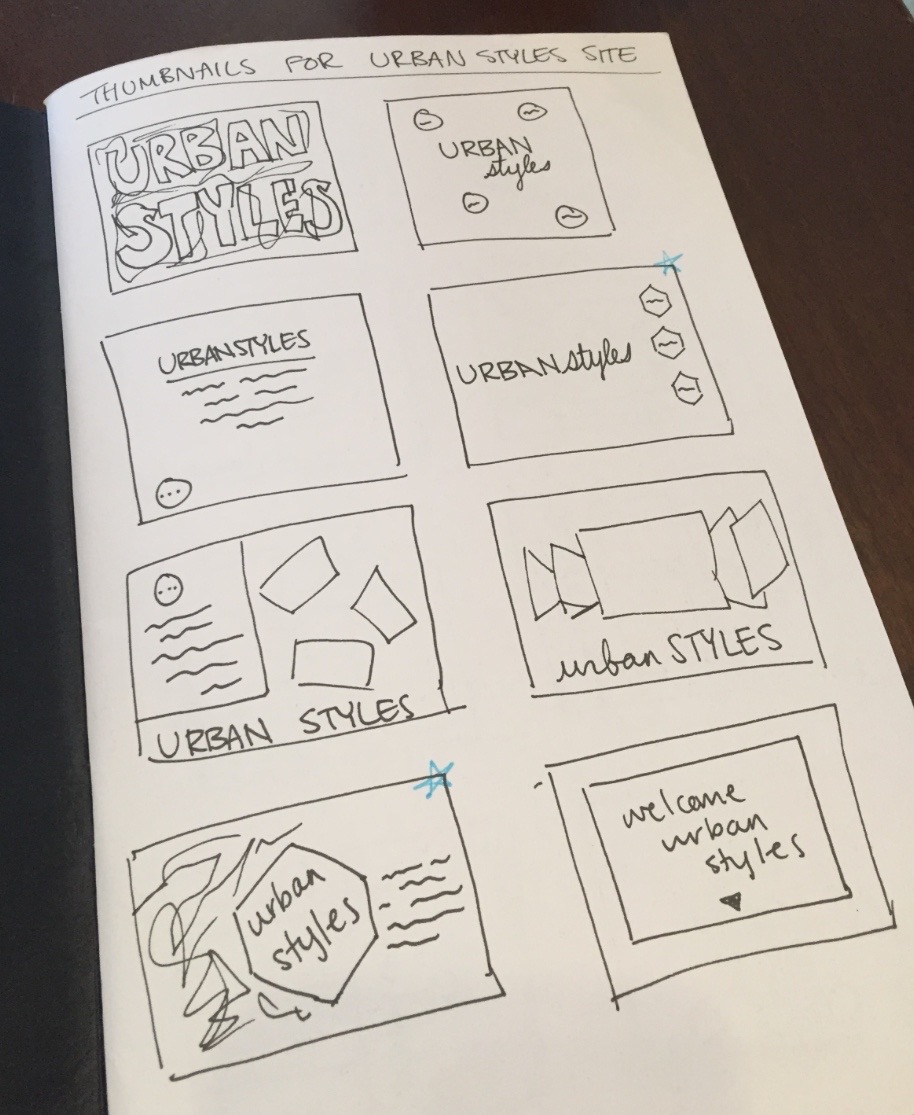 THUMBNAILS FOR URBAN STYLES SITE
URBAN
STYLES
URBAN
styles
URBANSTYLES
URBANstyles
URBAN STYLES
urban STYLES
urban
styles
welcome
urban
styles